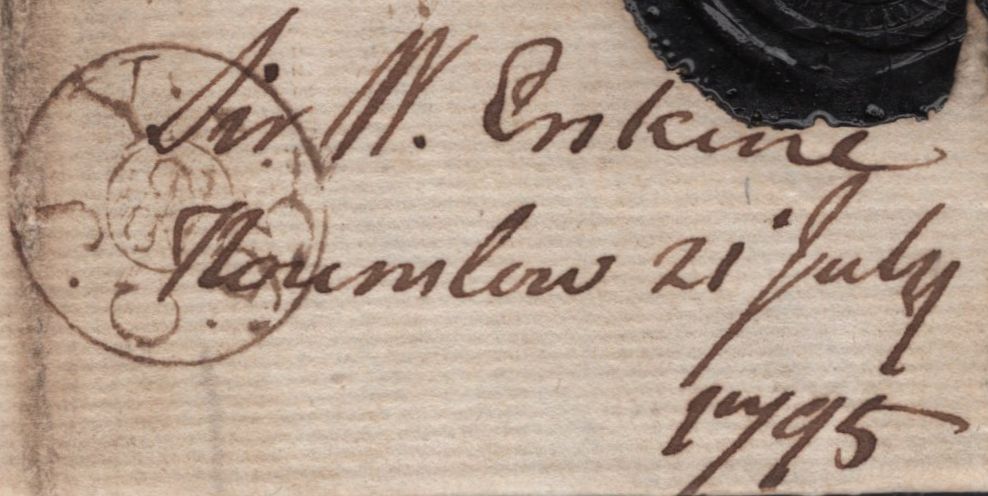 Sir W. Erskine
Hounslow 21 July
1795